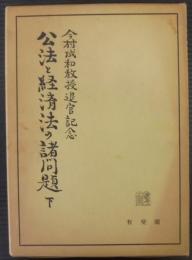 今村成和教授退官記念
公法と経済法の諸問題 下
有斐閣